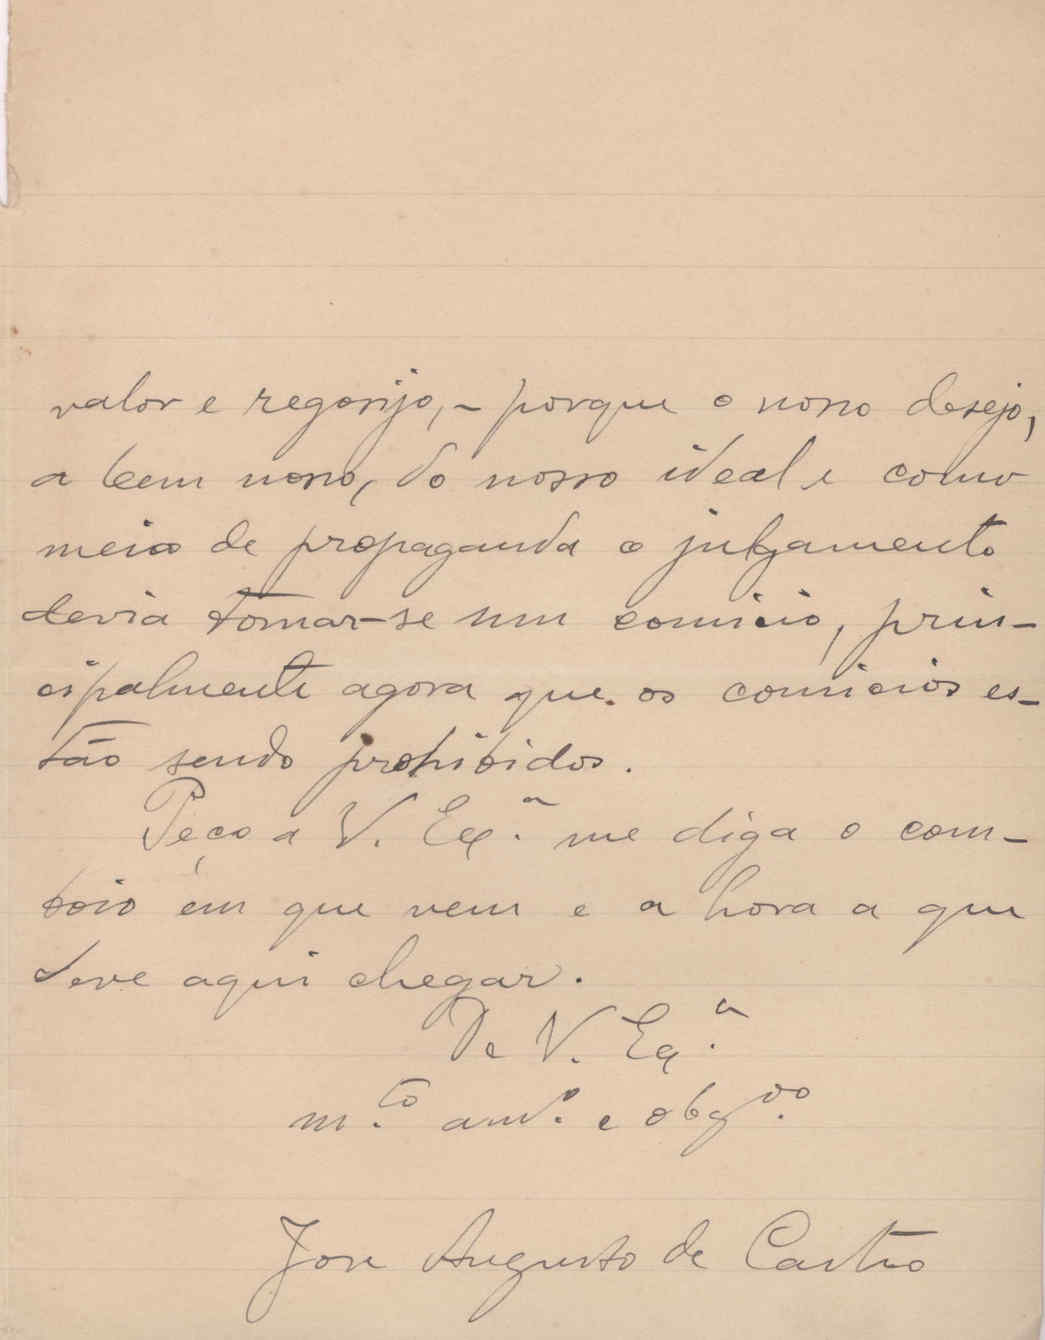 valor e regosijo, – porque o nosso desejo,
a bem nosso, do nosso ideal e como
meio de propaganda o julgamento
devia tornar-se um comicio, prin-
cipalmente agora que os comicios es-
tão sendo prohibidos.
Peço a V. Ex.ª me diga o com-
boio em que vem e a hora a que
deve aqui chegar.
De V. Ex.ª
m.to am.º e obg.do
José Augusto de Castro